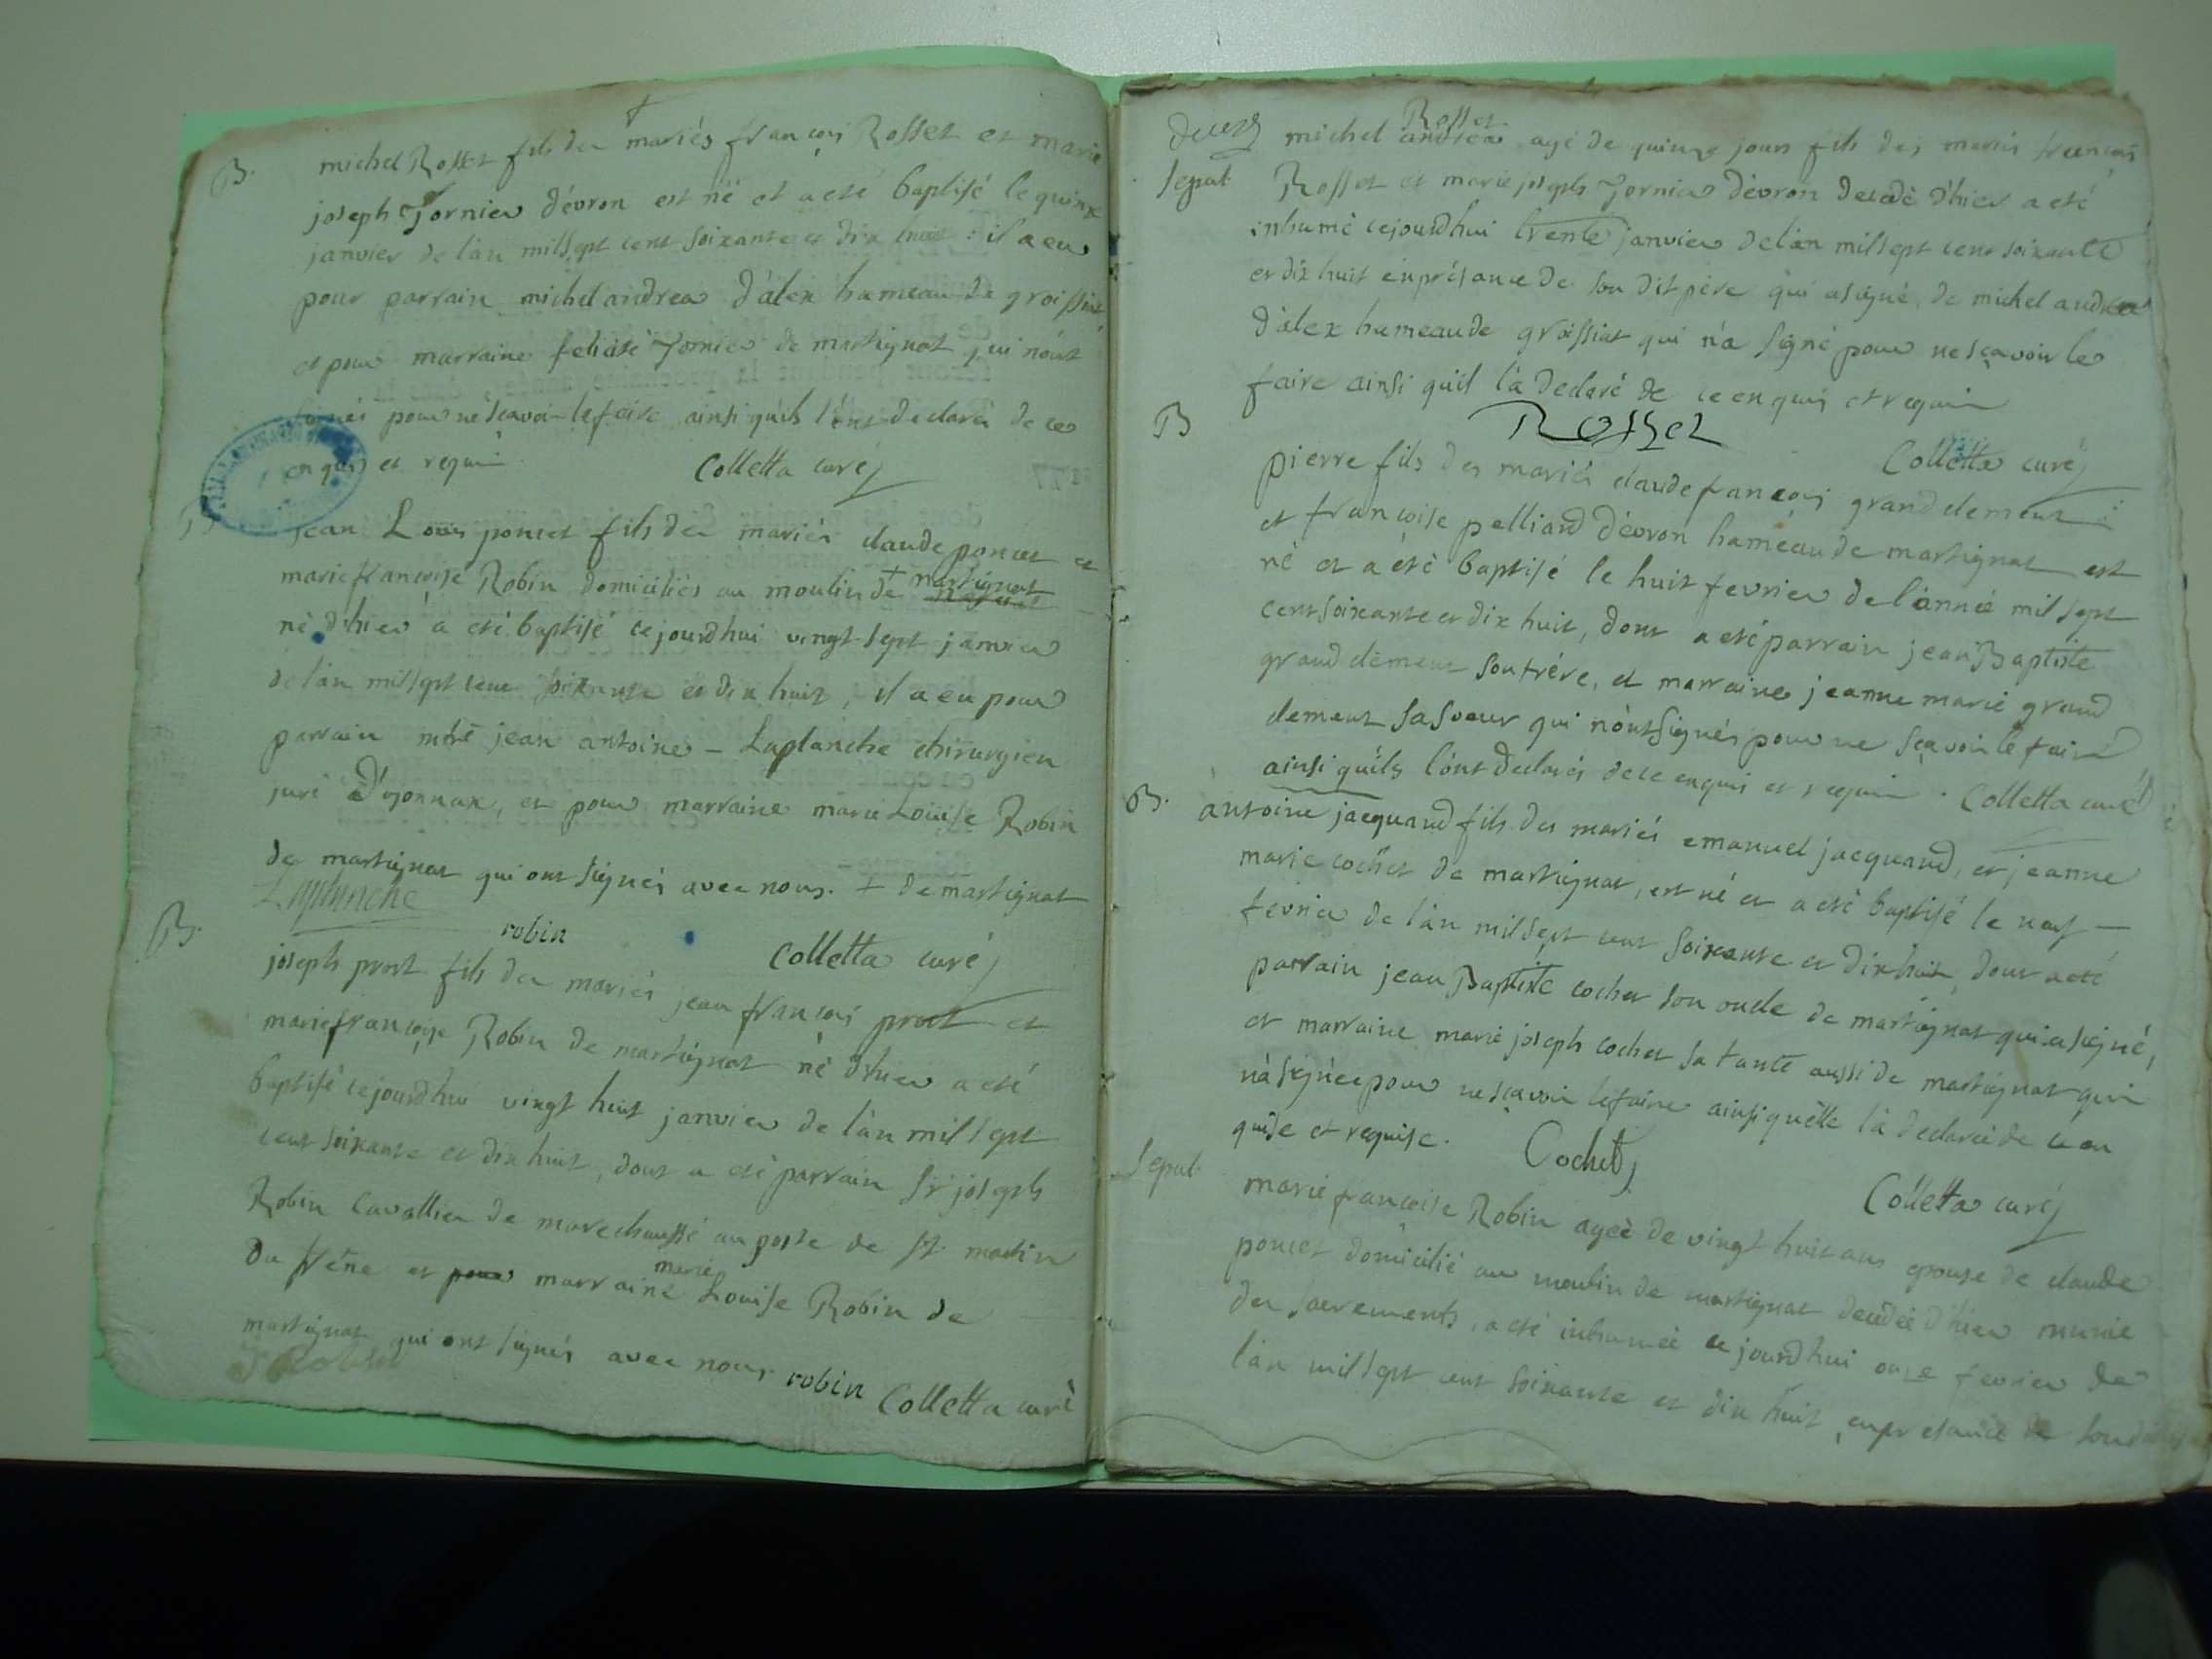 B.
michel Rosset fils des mariés françois Rosset et marie
joseph Jornier dévron est né et a eté baptisé le quinze
janvier de l'an mil sept cent soixante et dix huit : il a eu
pour parrain michel andrea d'alex hameau de groissiat
et pour marraine felicité Jornier de martignat qui n'ont
signés pour ne scavoir le faire ainsi qu'ils l'ont declaré de ce
enquis et requis
Colletta curé
jean Louis poncet fils des mariés claude poncet et
marie françoise Robin domiciliés au moulin de + martignat
né d'hier a eté baptisé ce jourdhui vingt sept janvier
de l'an mil sept cent soixante et dix huit, il a eu pour
parrain mtre jean antoine - Laplanche chirurgien
juré d'oyonnax, et pour marraine marie Louise Robin
de martignat qui ont signés avec nous. + de martignat
Laplanche
robin
Colletta curé
B.
joseph prost fils des mariés jean françois prost et
marie françoise Robin de martignat né d'hier a eté
baptisé ce jourdhui vingt huit janvier de l'an mil sept
cent soixante et dix huit, dont a eté parrain Sr joseph
Robin Cavallier de marechaussé au poste de St martin
du frêne et pour marraine marie Louise Robin de
martignat qui ont signés avec nous
J Robin
robin
Colletta curé
deces
Sepul.
michel andrea Rosset agé de quinze jours fils des mariés françois
Rosset et marie joseph Jornier dévron decedé d'hier a eté
inhumé ce jourdhui trente janvier de l'an mil sept cent soixante
et dix huit en présance de son dit père qui a signé, de michel andrea
d'alex hameau de groissiat qui n'a signé pour ne sçavoir le
faire ainsi qu'il l'a declaré de ce enquis et requis
Rosset
Colletta curé
B
pierre fils des mariés claude françois grandclement
et françoise pelliard dévron hameau de martignat est
né et a été baptisé le huit fevrier de l'année mil sept
cent soixante et dix huit, dont a eté parrain jean Baptiste
grandclement son frére, et marraine jeanne marie grand
clement sa soeur qui n'ont signés pour ne sçavoir le faire
ainsi qu'ils l'ont declarés de ce enquis et requis. Colletta curé
B.
antoine jacquand fils des mariés emanuel jacquand, et jeanne
marie cochet de martignat, est né et a eté baptisé le neuf
fevrier de l'an mil sept cent soixante et dix huit, dont a eté
parrain jean Baptiste cochet son oncle de martignat qui a signé,
et marraine marie joseph cochet sa tante aussi de martignat qui
n'a signée pour ne sçavoir le faire ainsi qu'elle l'a declarée de ce en
quise et requise.
Cochet
Colletta curé
Sepul.
marie françoise Robin ageé de vingt huit ans epouse de claude
poncet domicilié au moulin de martignat decedée d'hier munie
des sacrements, a eté inhumée ce jourdhui onze fevrier de
l'an mil sept cent soixante et dix huit, en presance de son